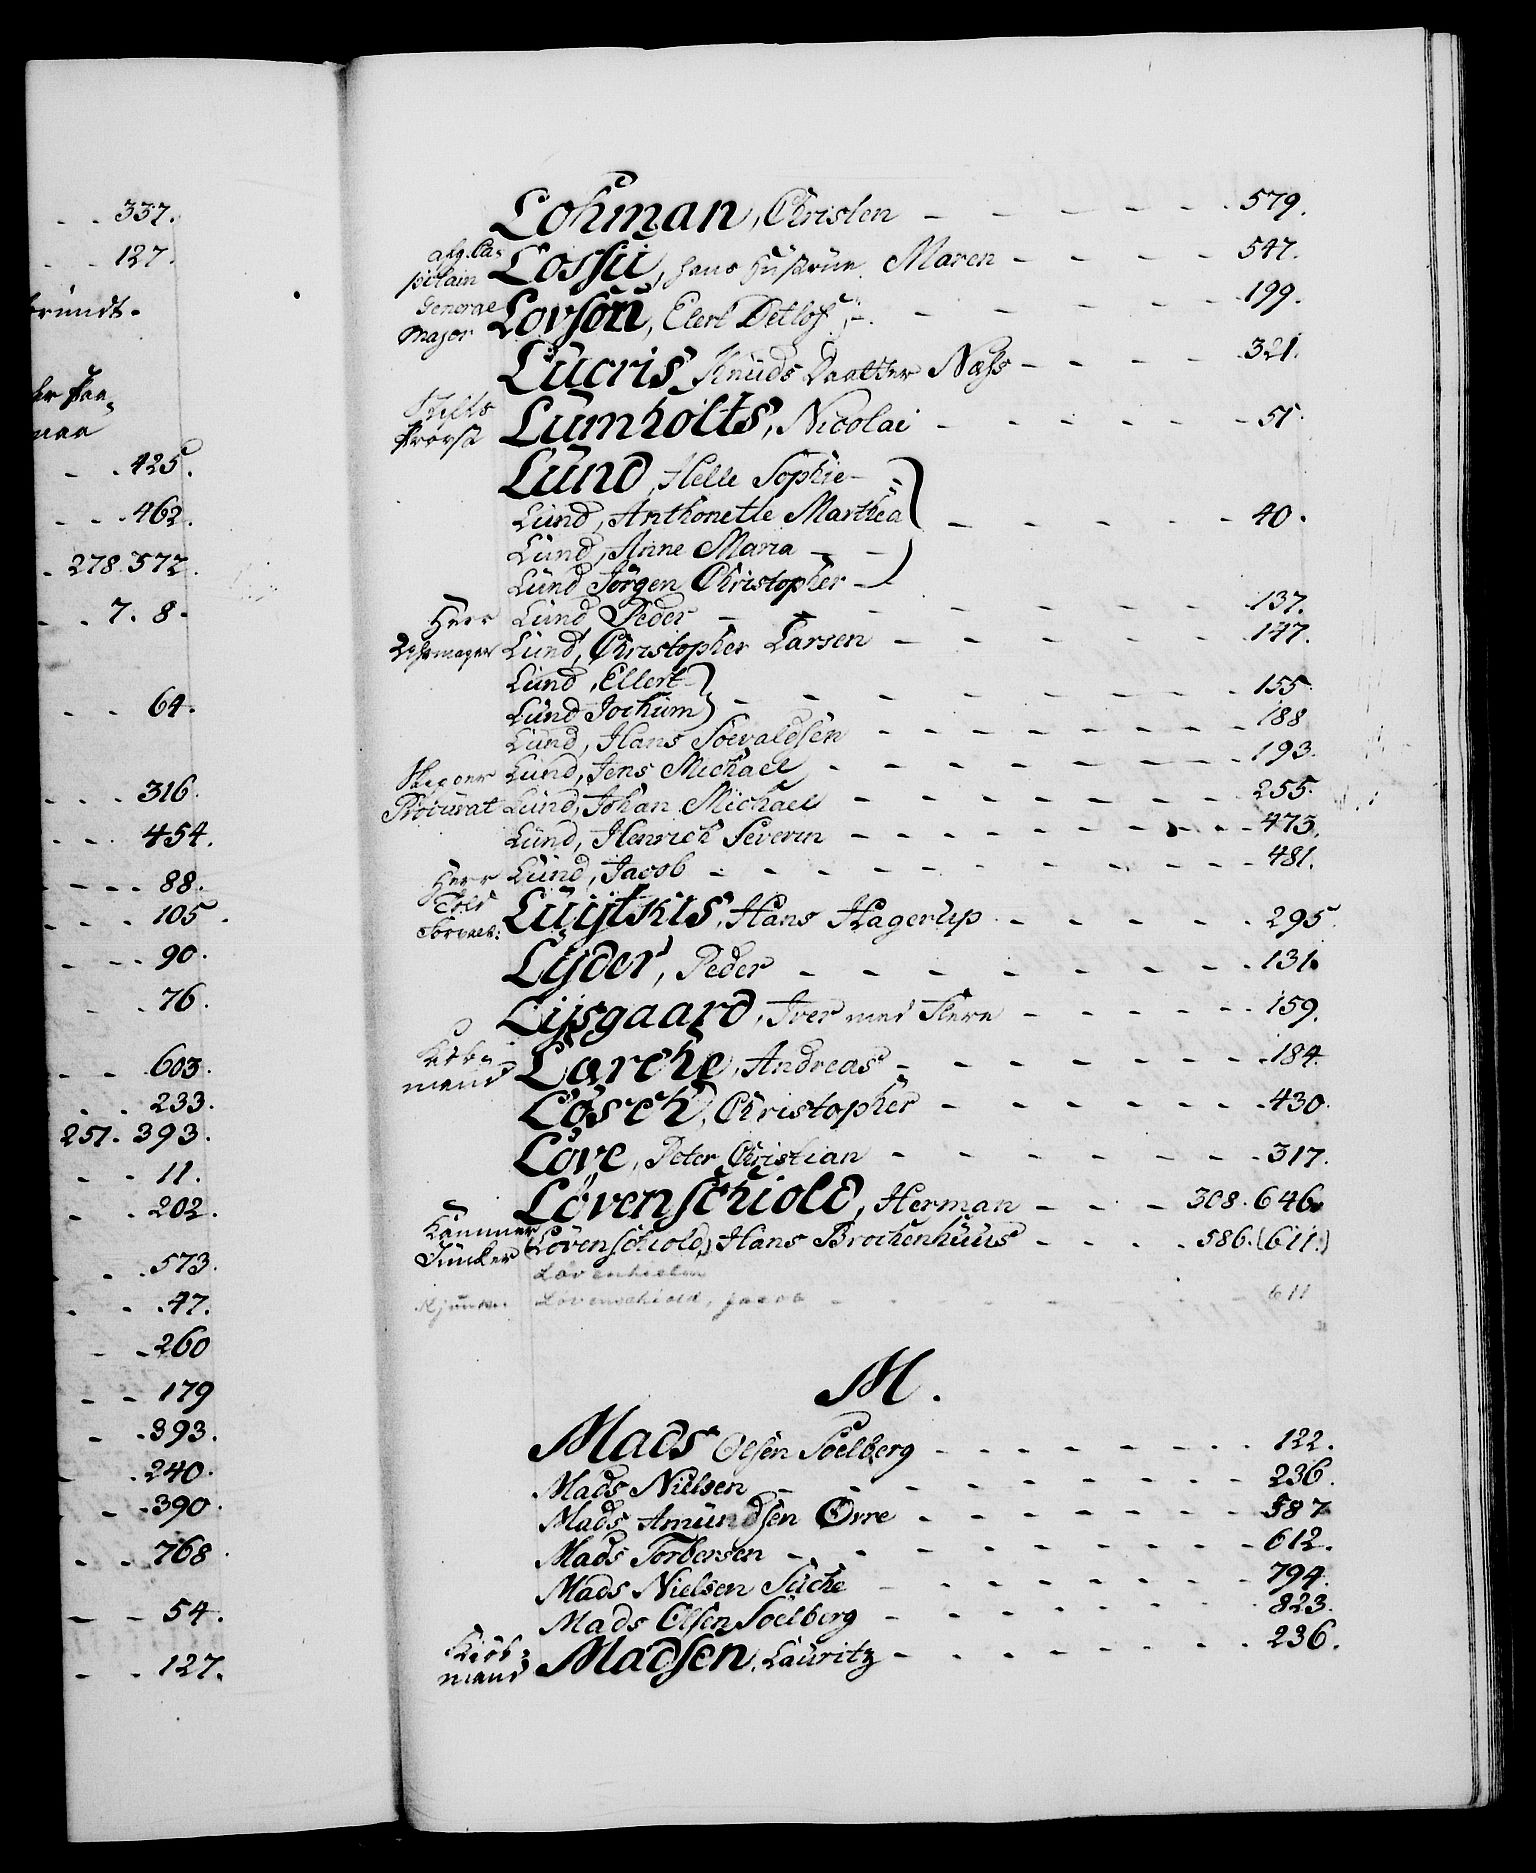 337.
127.
425.
462.
278. 572.
7. 8.
64.
316.
454.
88.
105.
90.
76.
603.
233.
251. 393.
11.
202.
573.
47.
260
179
393.
240.
390.
768.
54.
127.
Lohman, Christen 579.
afg. Ca-
pitain Lossii, hans Hustrue Maren 547.
General
Major Lovson, Elert Detlof 199.
Lucris Knuds Daatter Næss 321.
Stifts
Provst Lumholts, Nicolai 51.
Lund, Helle Sophie
Lund, Anthonette Marthea 40.
Lund, Anne Maria
Lund Jörgen Christopher
Herr Lund, Peder 137.
Lund, Christopher Larsen 147.
Lund, Ellert
Lund Jochum 155
Lund, Hans Soevaldsen 188
Lund, Jens Michael 193.
Procurat Lund, Johan Michael 255.
Lund, Henrich Severin 473.
Herr Lund, Jacob 481.
Luytkis, Hans Hagerup 295.
Lyder, Peder 131.
Lysgaard, Iver med Flere 159.
Kiöb-
mand Larche, Andreas 184.
Lösch, Christopher 430.
Löve, Peter Christian 317.
Lövenschiold, Herman 308. 646.
Kammer
Juncker (Lövenschiold,) Hans Brockenhuus 586. (611.)
Lövenhielm
Kjunker. Lövenschiold, Jacob 611
M.
Mads Olsen Soelberg 122.
Mads Nielsen 236.
Mads Amundsen Orre 587
Mads Torbersen 612.
Mads Nielsen Suche 794.
Mads Olsen Soelberg 823.
Kiöb-
mand Madsen, Lauritz 236.